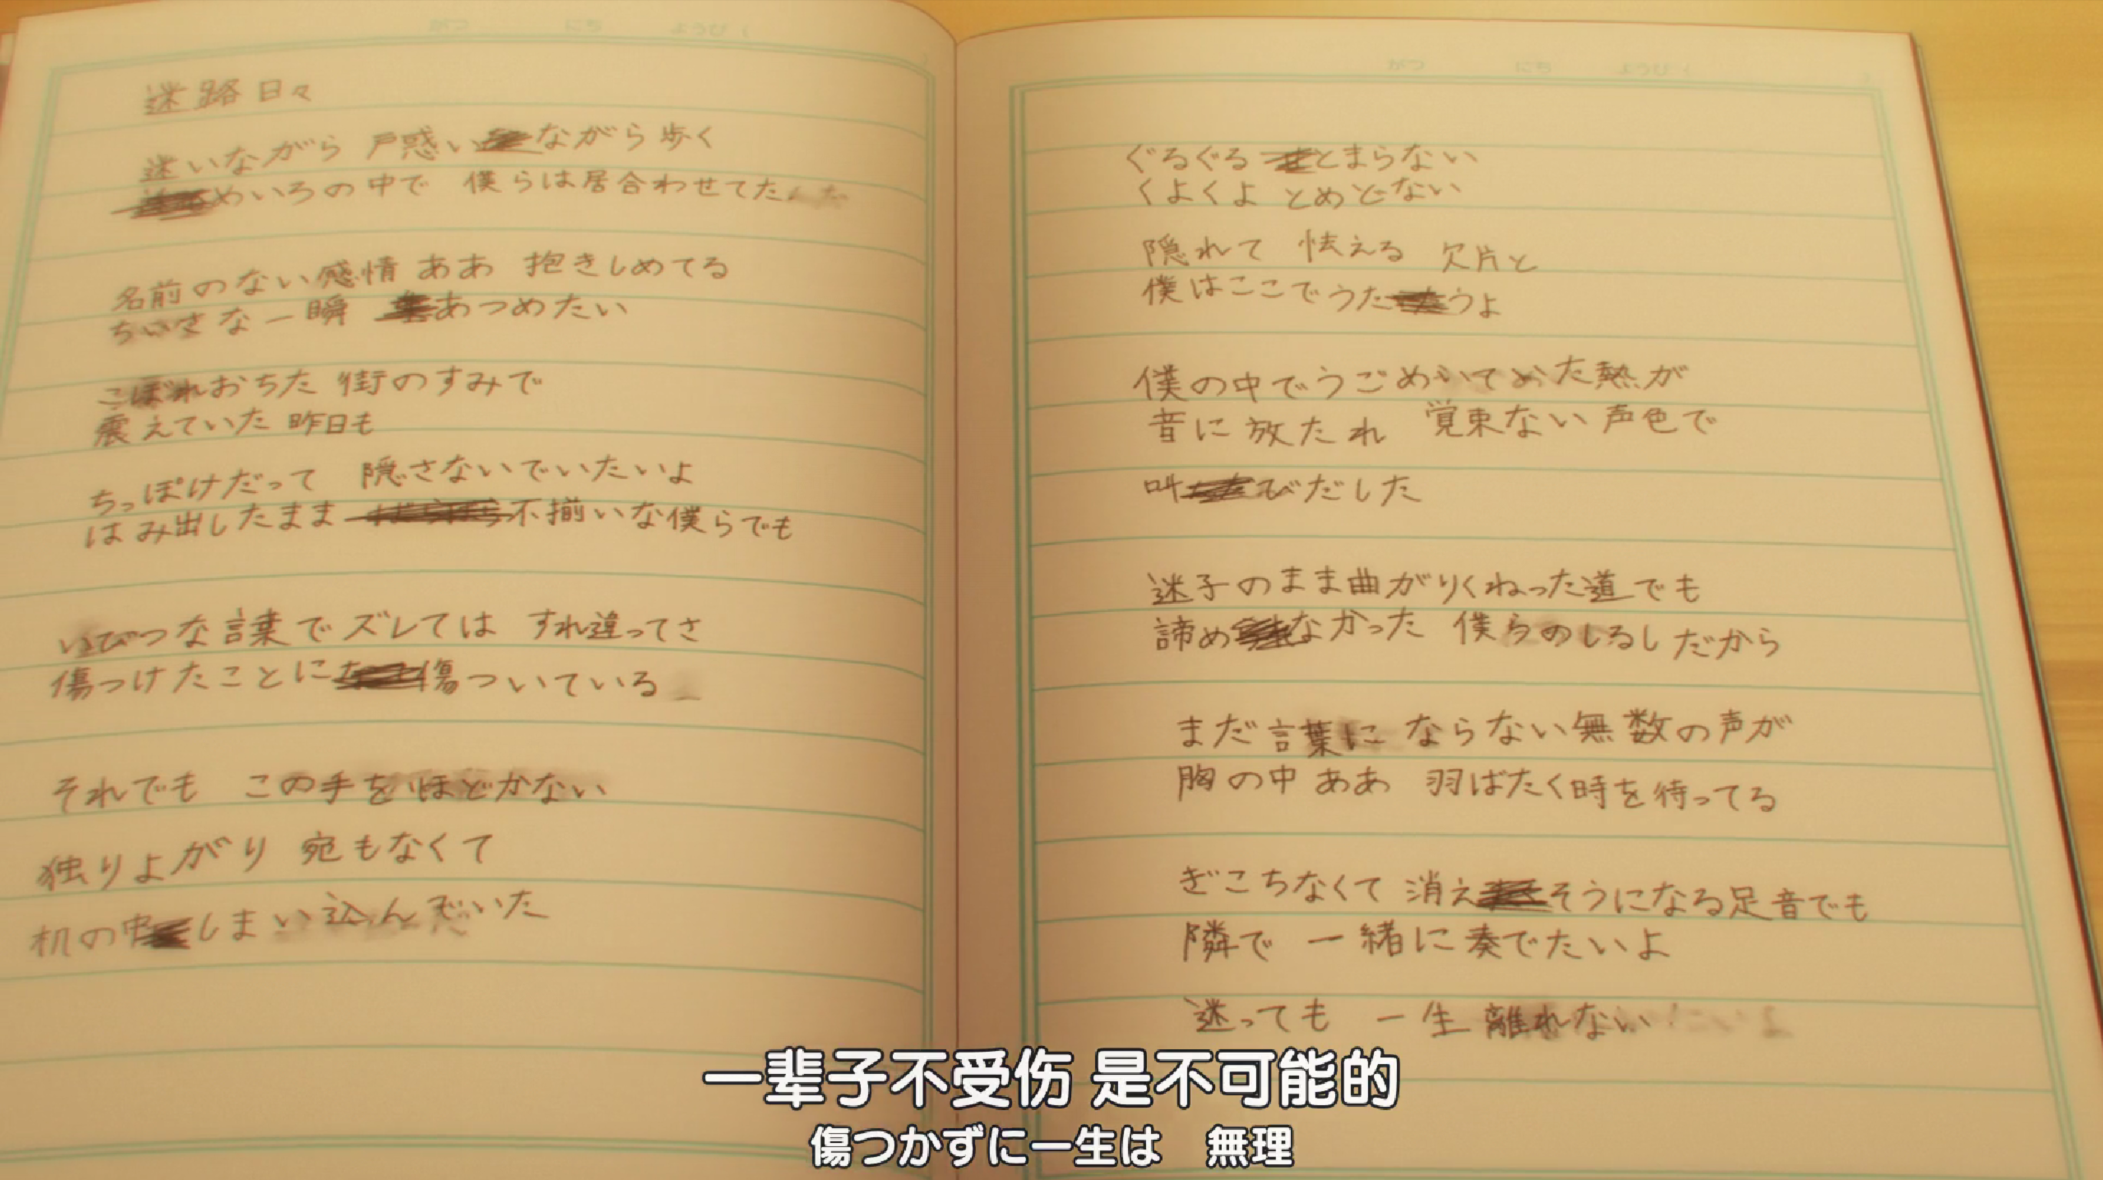 がつ にち ようび（
迷路日々
迷いながら 戸惑いながら歩く
めいろの中で 僕らは居合わせてた
名前のない感情 ああ 抱きしめてる
ちいさな一瞬 あつめたい
こぼれおちた 街のすみで
震えていた 昨日も
ちっぽけだって 隠さないでいたいよ
はみ出したまま 不揃いな僕らでも
いびつな言葉でズレては すれ違ってさ
傷つけたことに傷ついている
それでも この手をほどかない
独りよがり 宛もなくて
机の中しまい込んでいた
がつ にち ようび（
ぐるぐる とまらない
くよくよ とめどない
隠れて 怯える 欠片と
僕はここでうたうよ
僕の中でうごめいてた熱が
音に放たれ 覚束ない声色で
叫びだした
迷子のまま曲がりくねった道でも
諦めなかった 僕らのしるしだから
まだ言葉にならない無数の声が
胸の中 ああ 羽ばたく時を待ってる
ぎこちなくて 消えそうになる足音でも
隣で 一緒に奏でたいよ
迷っても 一生離れない
一辈子不受伤 是不可能的
傷つかずに一生は 無理